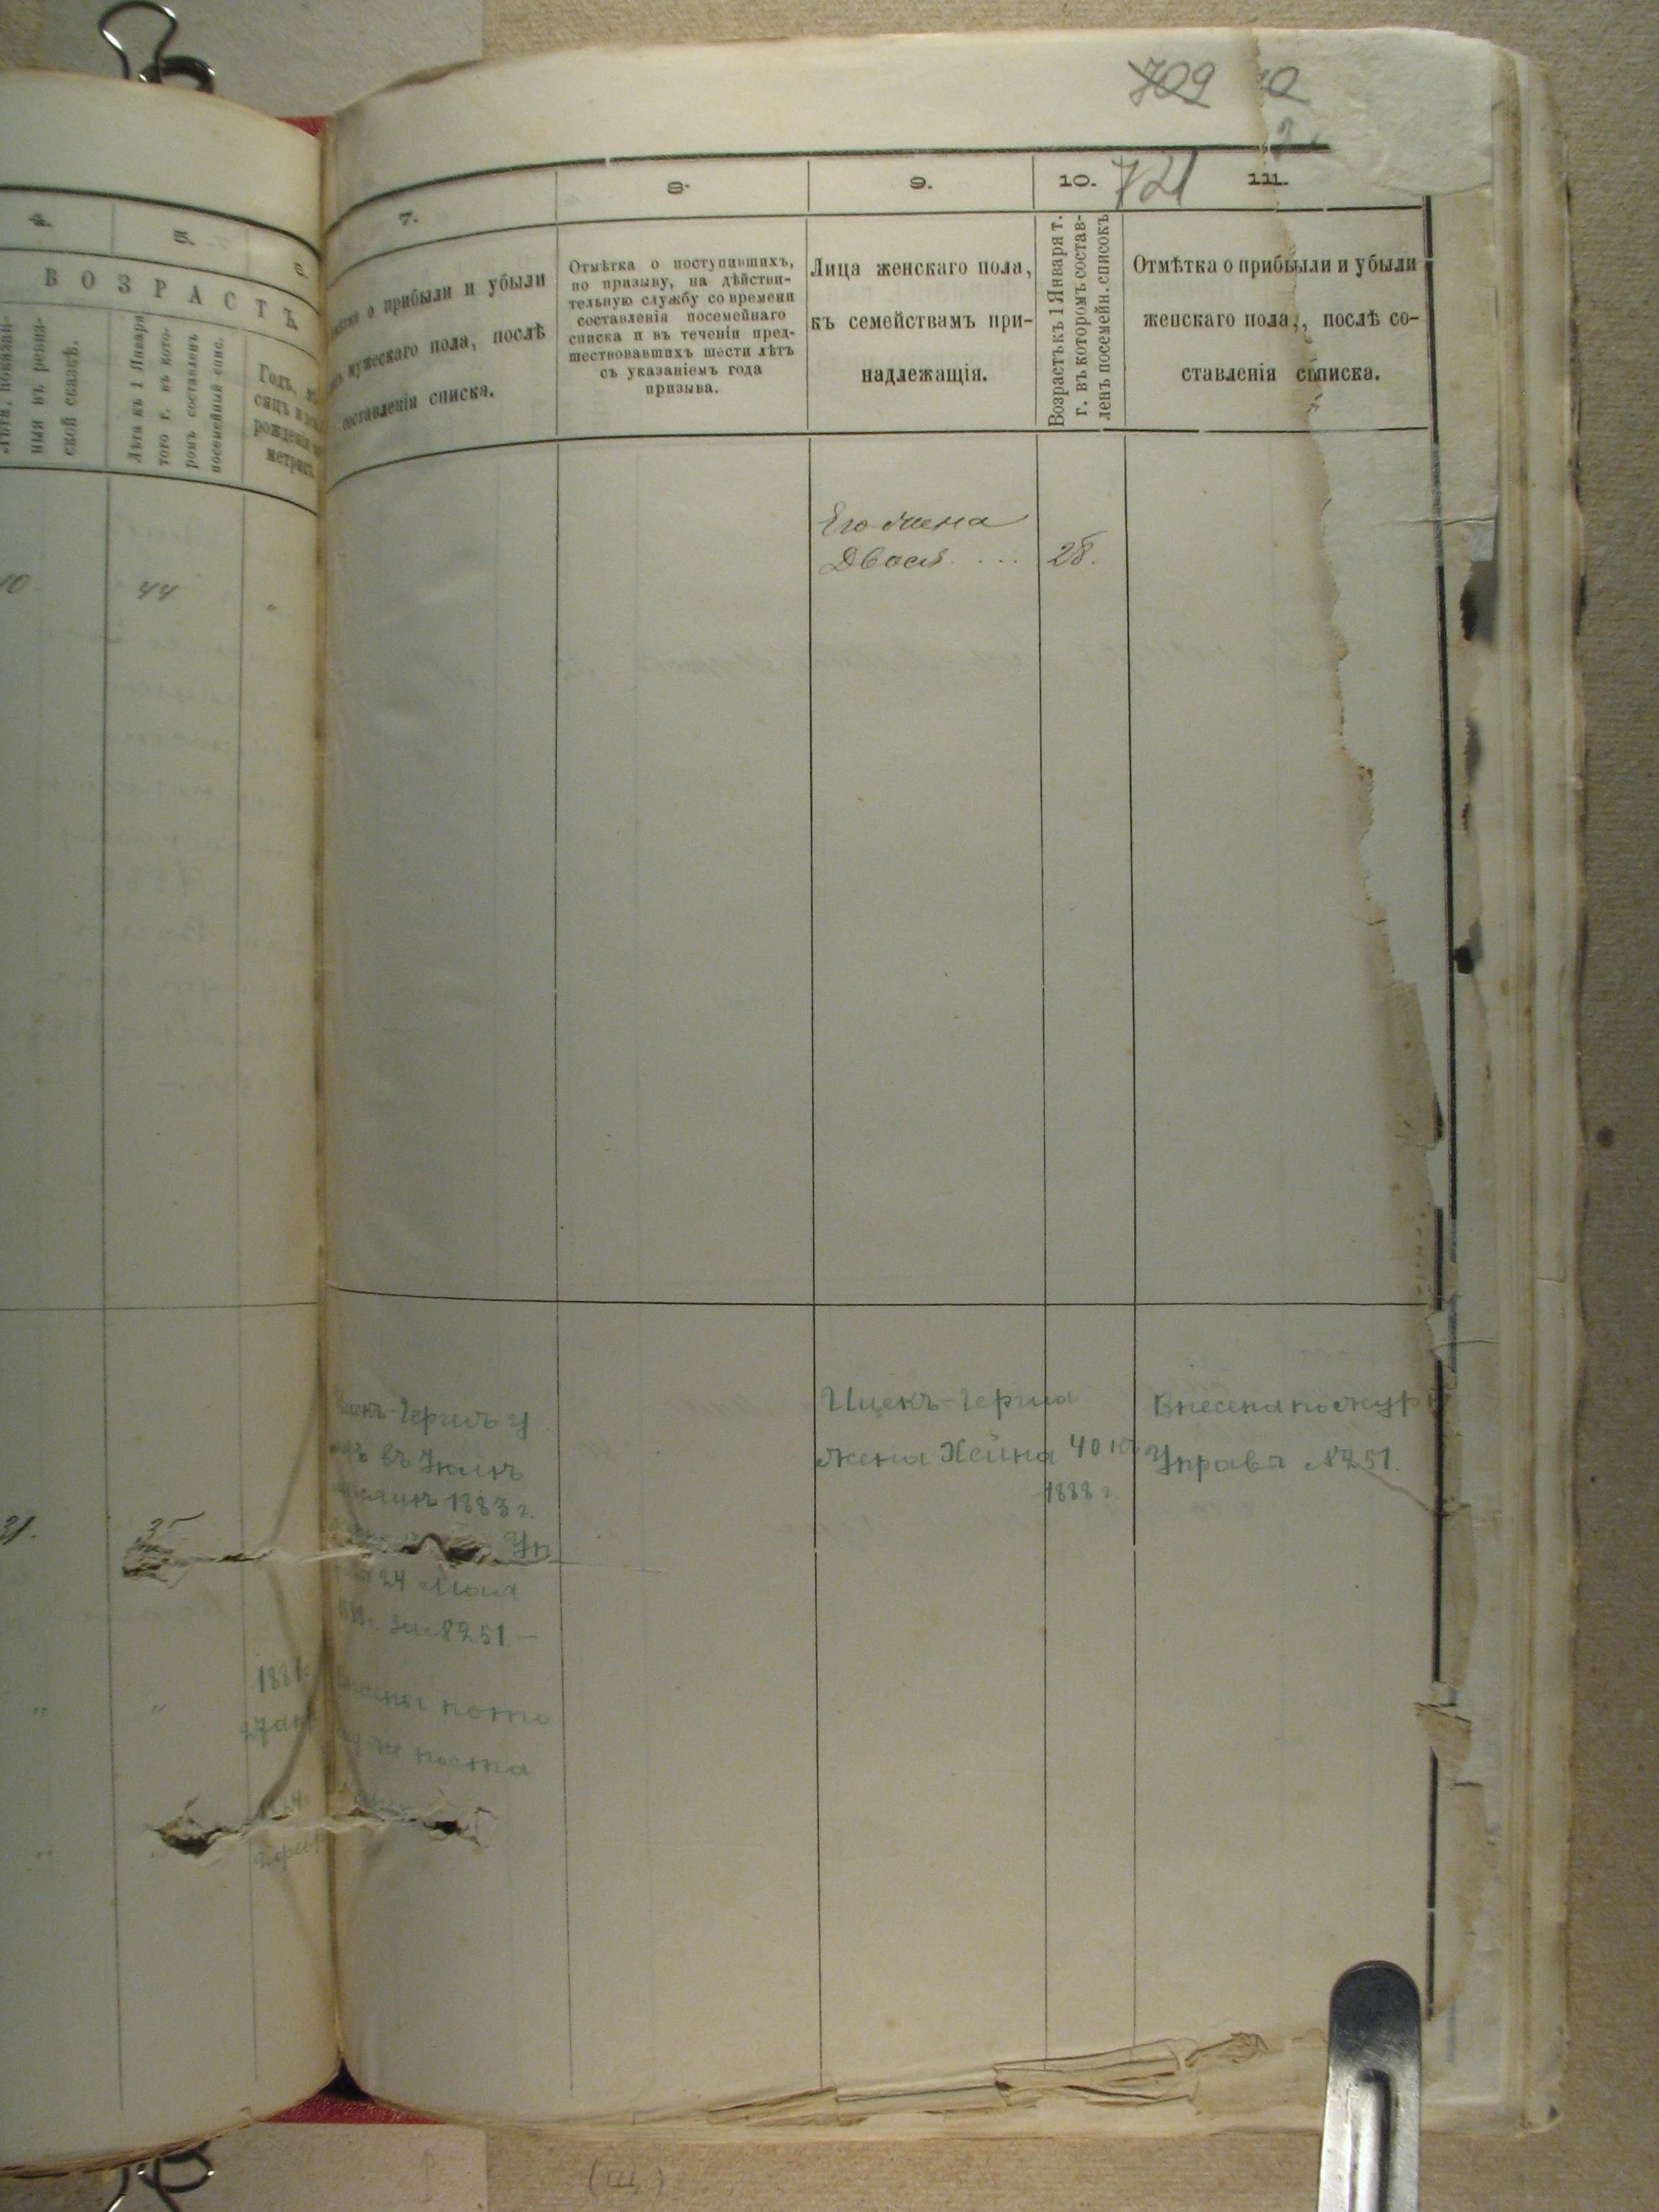 709
721
4.
5.
6
ВОЗРАСТЪ
ныя въ ревиз-
ской сказкѣ.
Лѣта къ 1 Января
того г. въ кото-
ромъ составленъ
посемейный спис.
Годъ,
рожденія
7.
8.
9.
10.
11.
о прибыли и убыли
мужескаго пола, послѣ
составленія списка.
Отмѣтка о поступившихъ,
по призыву, на дѣйстви-
тельную службу со времени
составленія посемейнаго
списка и въ теченіи пред-
шествовавшихъ шести лѣтъ
съ указаніемъ года
призыва.
Лица женскаго пола,
къ семействамъ при-
надлежащія.
Возрастъ къ 1 Января т.
г. въ которомъ состав-
ленъ посемейн. списокъ
Отмѣтка о прибыли и убыли
женскаго пола, послѣ со-
ставленія списка.
44
Его жена
Двося .... 28.
31.
35
1881
27 апр
Герша у
въ Іюлѣ
1883 г.
Уп
24 Мая
за №8251 —
пото
Ицекъ-Герша
жена Хейна 40
1888 г.
Внесена по журн
Управы №8251.